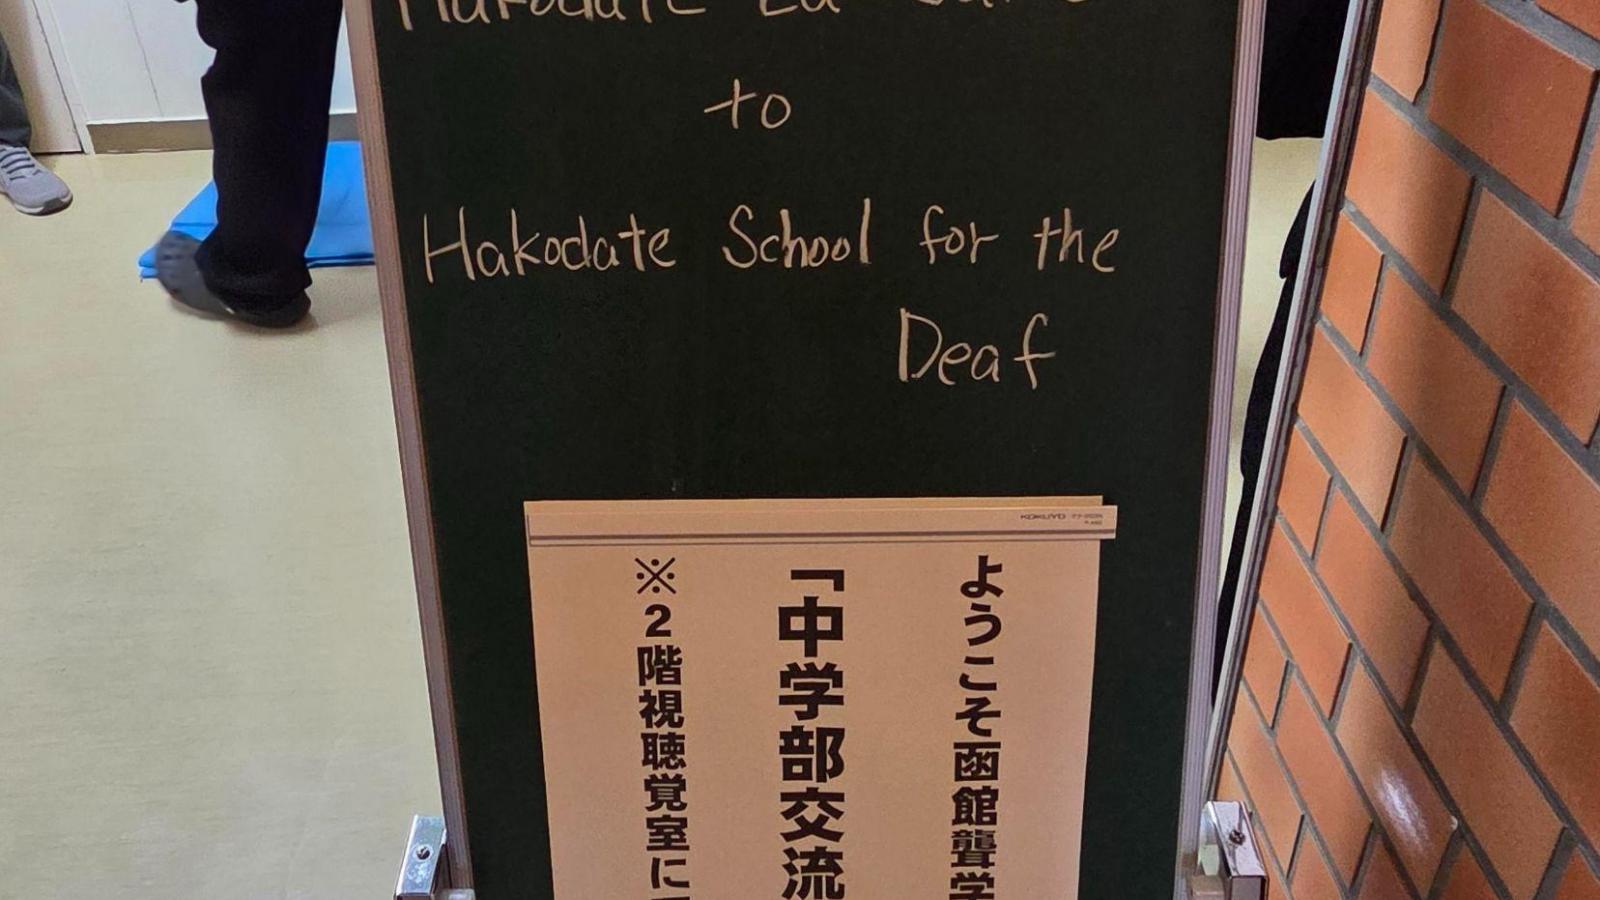 Hakodate La Salle
to
Hakodate School for the
Deaf
KOKUYO
ようこそ函館聾学
「中学部交流
※2階視聴覚室に